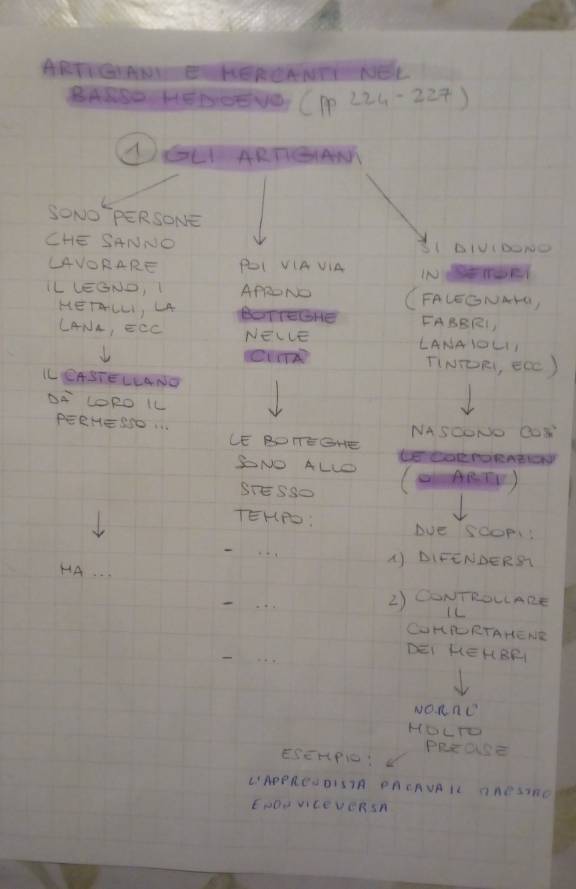 ARTIGIANI E MERCANTI NEL
BASSO MEDIOEVO (pp 224-227)
1 GLI ARTIGIANI
SONO PERSONE
CHE SANNO
LAVORARE
IL LEGNO, I
METALLI, LA
LANA, ECC
IL CASTELLANO
DÀ LORO IL
PERMESSO...
MA ...
POI VIA VIA
APRONO
BOTTEGHE
NELLE
CITTÀ
LE BOTTEGHE
SONO ALLO
STESSO
TEMPO:
- ...
- ...
- ...
SI DIVIDONO
IN SETTORI
(FALEGNAMI,
FABBRI,
LANAIOLI,
TINTORI, ECC)
NASCONO COSÌ
LE CORPORAZIONI
(O ARTI)
DUE SCOPI:
1) DIFENDERSI
2) CONTROLLARE
IL
COMPORTAMENE
DEI MEMBRI
NORME
MOLTO
PRECISE
ESEMPIO:
L'APPRENDISTA PAGAVA IL MAESTRO
E NON VICEVERSA